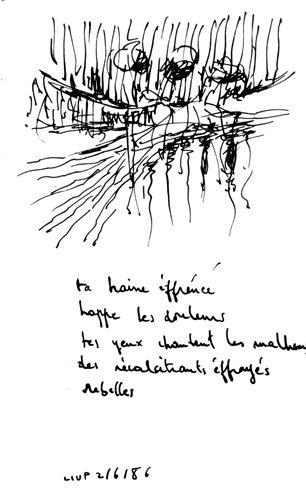 ta haine éffrénée
happe les douleurs
tes yeux chantent les malheur
des récalcitrants éffrayés
Rebelles
LIUP 2/6/86